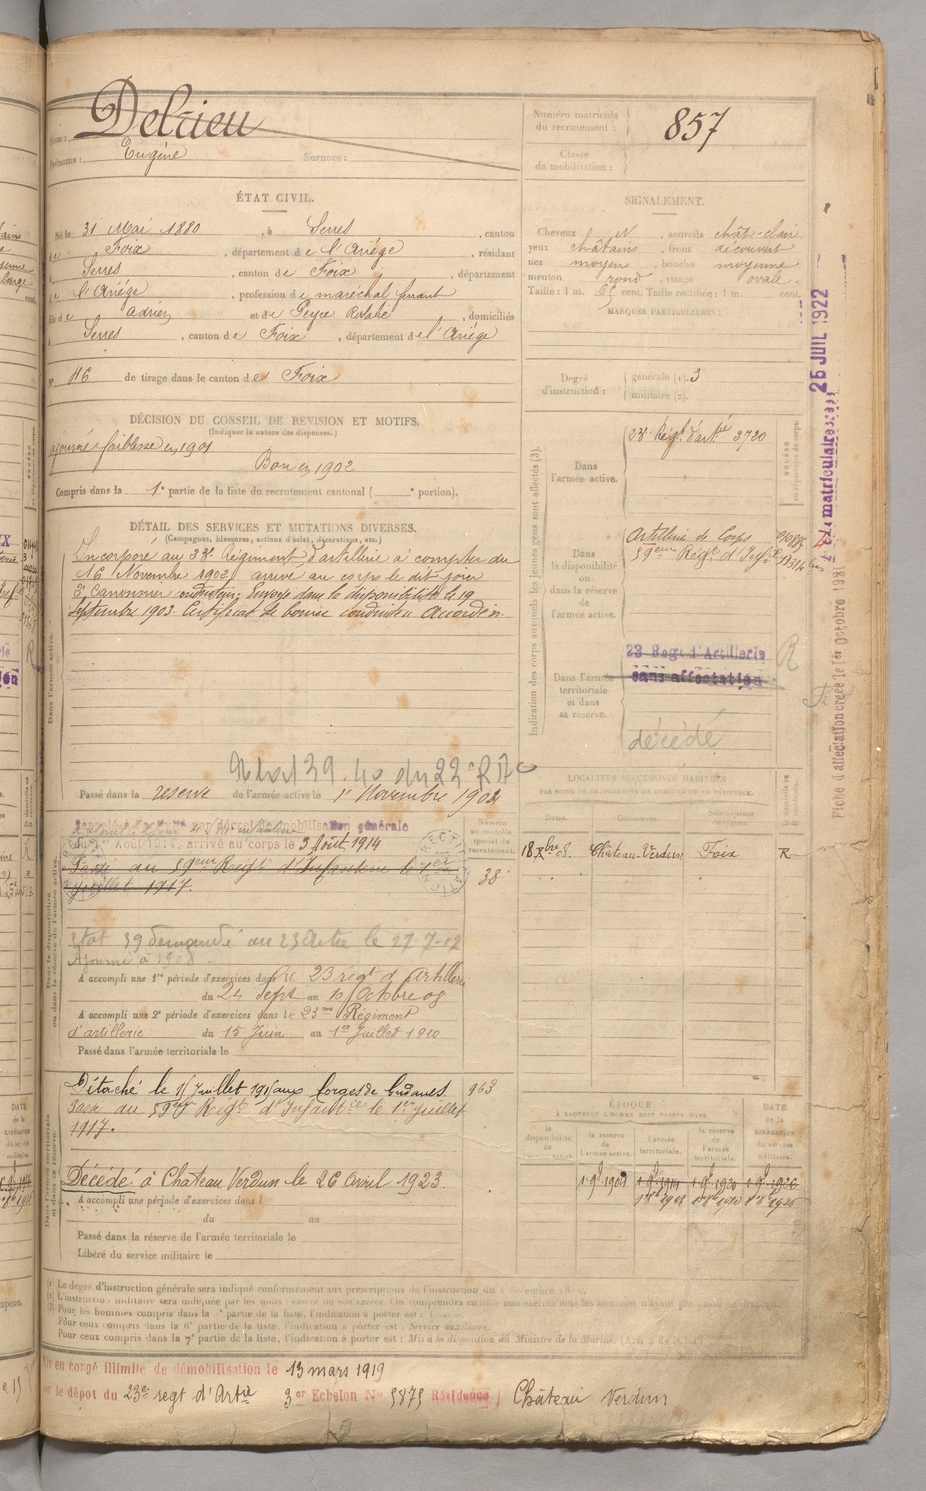 Nom : Delrieu
Prénoms : Eugène Surnoms :
Numéro matricule du recrutement : 857
Classe de mobilisation :
ÉTAT CIVIL.
Né le 31 Mai 1880, à Serres, canton
de Foix, département de l'Ariège, résidant
à Serres, canton de Foix, département
de l'Ariège, profession de maréchal ferrant
fils de Adrien et de Peyre Rosalie, domiciliés
à Serres, canton de Foix, département de l'Ariège
N° 116 de tirage dans le canton de Foix
SIGNALEMENT.
Cheveux N, sourcils chât-clair
yeux châtains, front découvert
nez moyen, bouche moyenne
menton rond, visage ovale.
Taille : 1 m. 65 cent. Taille rectifiée : 1 m. cent.
MARQUES PARTICULIÈRES :
Degré d'instruction : générale (1). 3
militaire (2).
DÉCISION DU CONSEIL DE REVISION ET MOTIFS.
(Indiquer la nature des dispenses.)
ajourné faiblesse en 1901
Bon en 1902
Compris dans la 1e partie de la liste du recrutement cantonal ( e portion).
DÉTAIL DES SERVICES ET MUTATIONS DIVERSES.
(Campagnes, blessures, actions d'éclat, décorations, etc.)
Incorporé au 23e Régiment d'artillerie à compter du
16 Novembre 1902, arrivé au corps le dit jour
2e Canonnier conducteur, Envoyé dans la disponibilité le 19
Septembre 1903. Certificat de bonne conduite Accordé.
Passé dans la réserve de l'armée active le 1er Novembre 1904
mobilisation générale
Août 1914, arrivé au corps le 3 Août 1914
Passé au 59eme Regt d'Infanterie le 1er
Juillet 1917.
Etat 39 demandé au 23 Artie le 27-7-
Ajourné à 1908
A accompli une 1re période d'exercices dans le 23 régt d'Artillerie
du 24 Sept au Octobre 08
A accompli une 2e période d'exercices dans le 23me Régiment
d'artillerie du 15 Juin au 1er Juillet 1910
Passé dans l'armée territoriale le
Détaché le Juillet aux forges de
Passé au 59eme Regt d'Infanterie le 1er Juillet
1917.
Décédé à Chateau Verdun le 26 Avril 1923.
A accompli une période d'exercices dans l
du au
Passé dans la réserve de l'armée territoriale le
Libéré du service militaire le
Numéro au contrôle spécial du recrutement.
38
963
Indication des corps auxquels les jeunes gens sont affectés (3).
Dans l'armée active.
23e Régt d'artie 3720
Dans la disponibilité ou dans la réserve de l'armée active.
Artillerie de Corps
59eme Regt d'Infie
Dans l'armée territoriale et dans sa réserve.
23 Regt d'Artillerie
sans affectation
décédé
R
25 JUIL 1922
Fiche d'affectation créée le 1er Octobre 1921
LOCALITÉS SUCCESSIVES HABITÉES
PAR SUITE DE CHANGEMENT DE DOMICILE OU DE RÉSIDENCE.
Dates. Communes. Subdivisions
18 Xbre 08. Château-Verdun Foix R
ÉPOQUE
À LAQUELLE L'HOMME DOIT PASSER DANS
la disponibilité de l'active. la réserve de l'active. l'armée territoriale. la réserve de l'armée territoriale.
DATE de la LIBÉRATION du service militaire.
Le degré d'instruction générale sera indiqué conformément aux prescriptions de l'instruction du
Pour les hommes compris dans la 1e partie de la liste, l'indication à porter est :
Pour ceux compris dans la 6e partie de la liste, l'indication à porter est : Service auxiliaire.
Pour ceux compris dans la 7e partie de la liste, l'indication à porter est : Mis à la disposition du Ministre de la Marine.
Mis en congé illimité de démobilisation le 13 mars 1919
par le dépot du 23e regt d'Artie 3er Echelon No 5875 Résidence Château Verdun